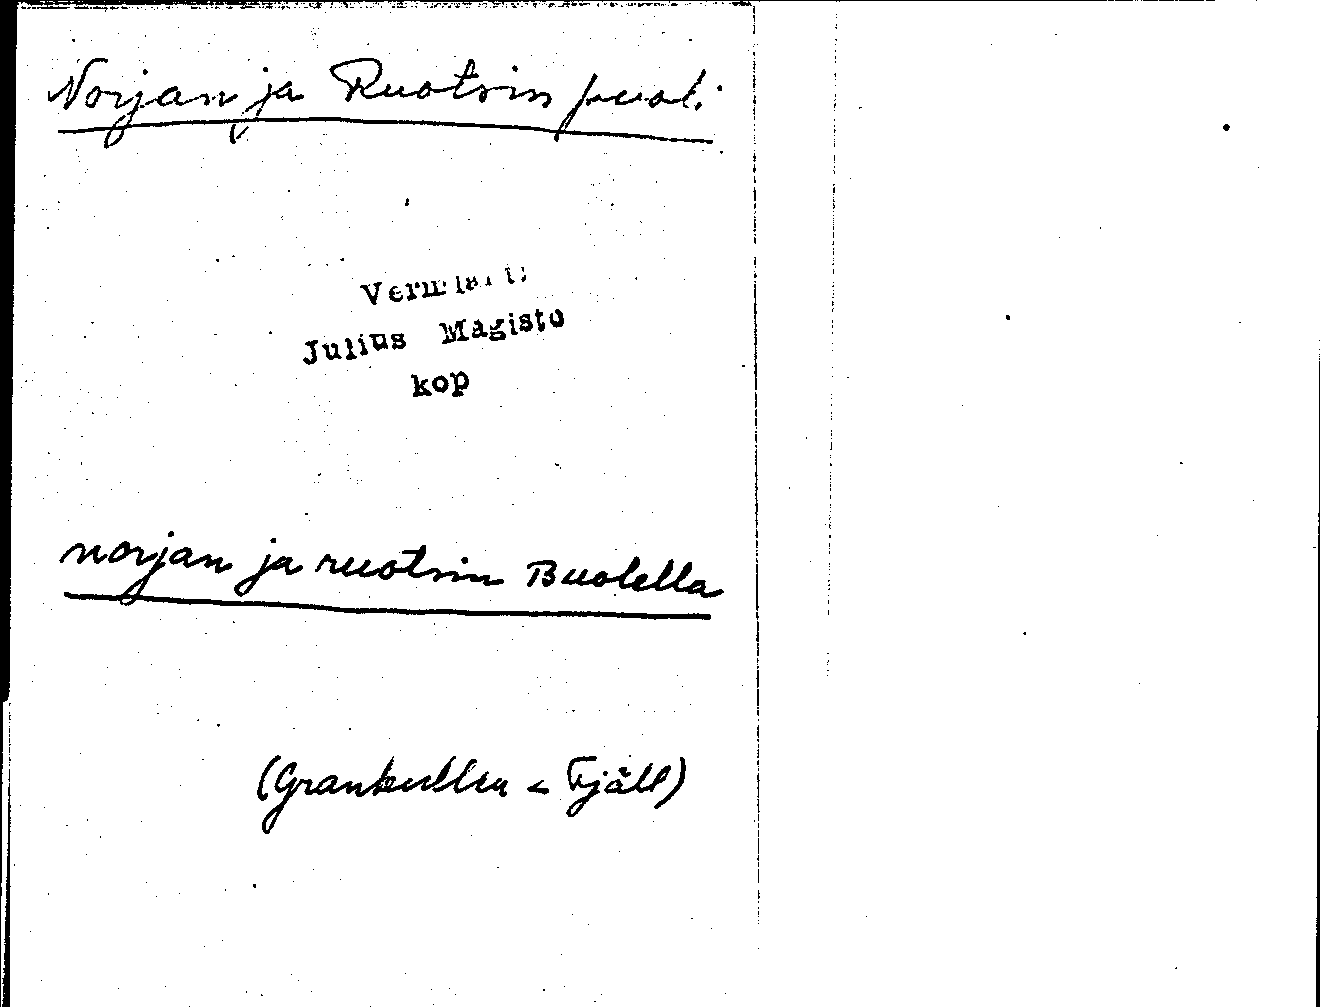 Norjan ja Ruotsin puoli
Vermlanti
Julius Mägisto
kop
norjan ja ruotsin Buolella
(Grankullen < Fjäll)